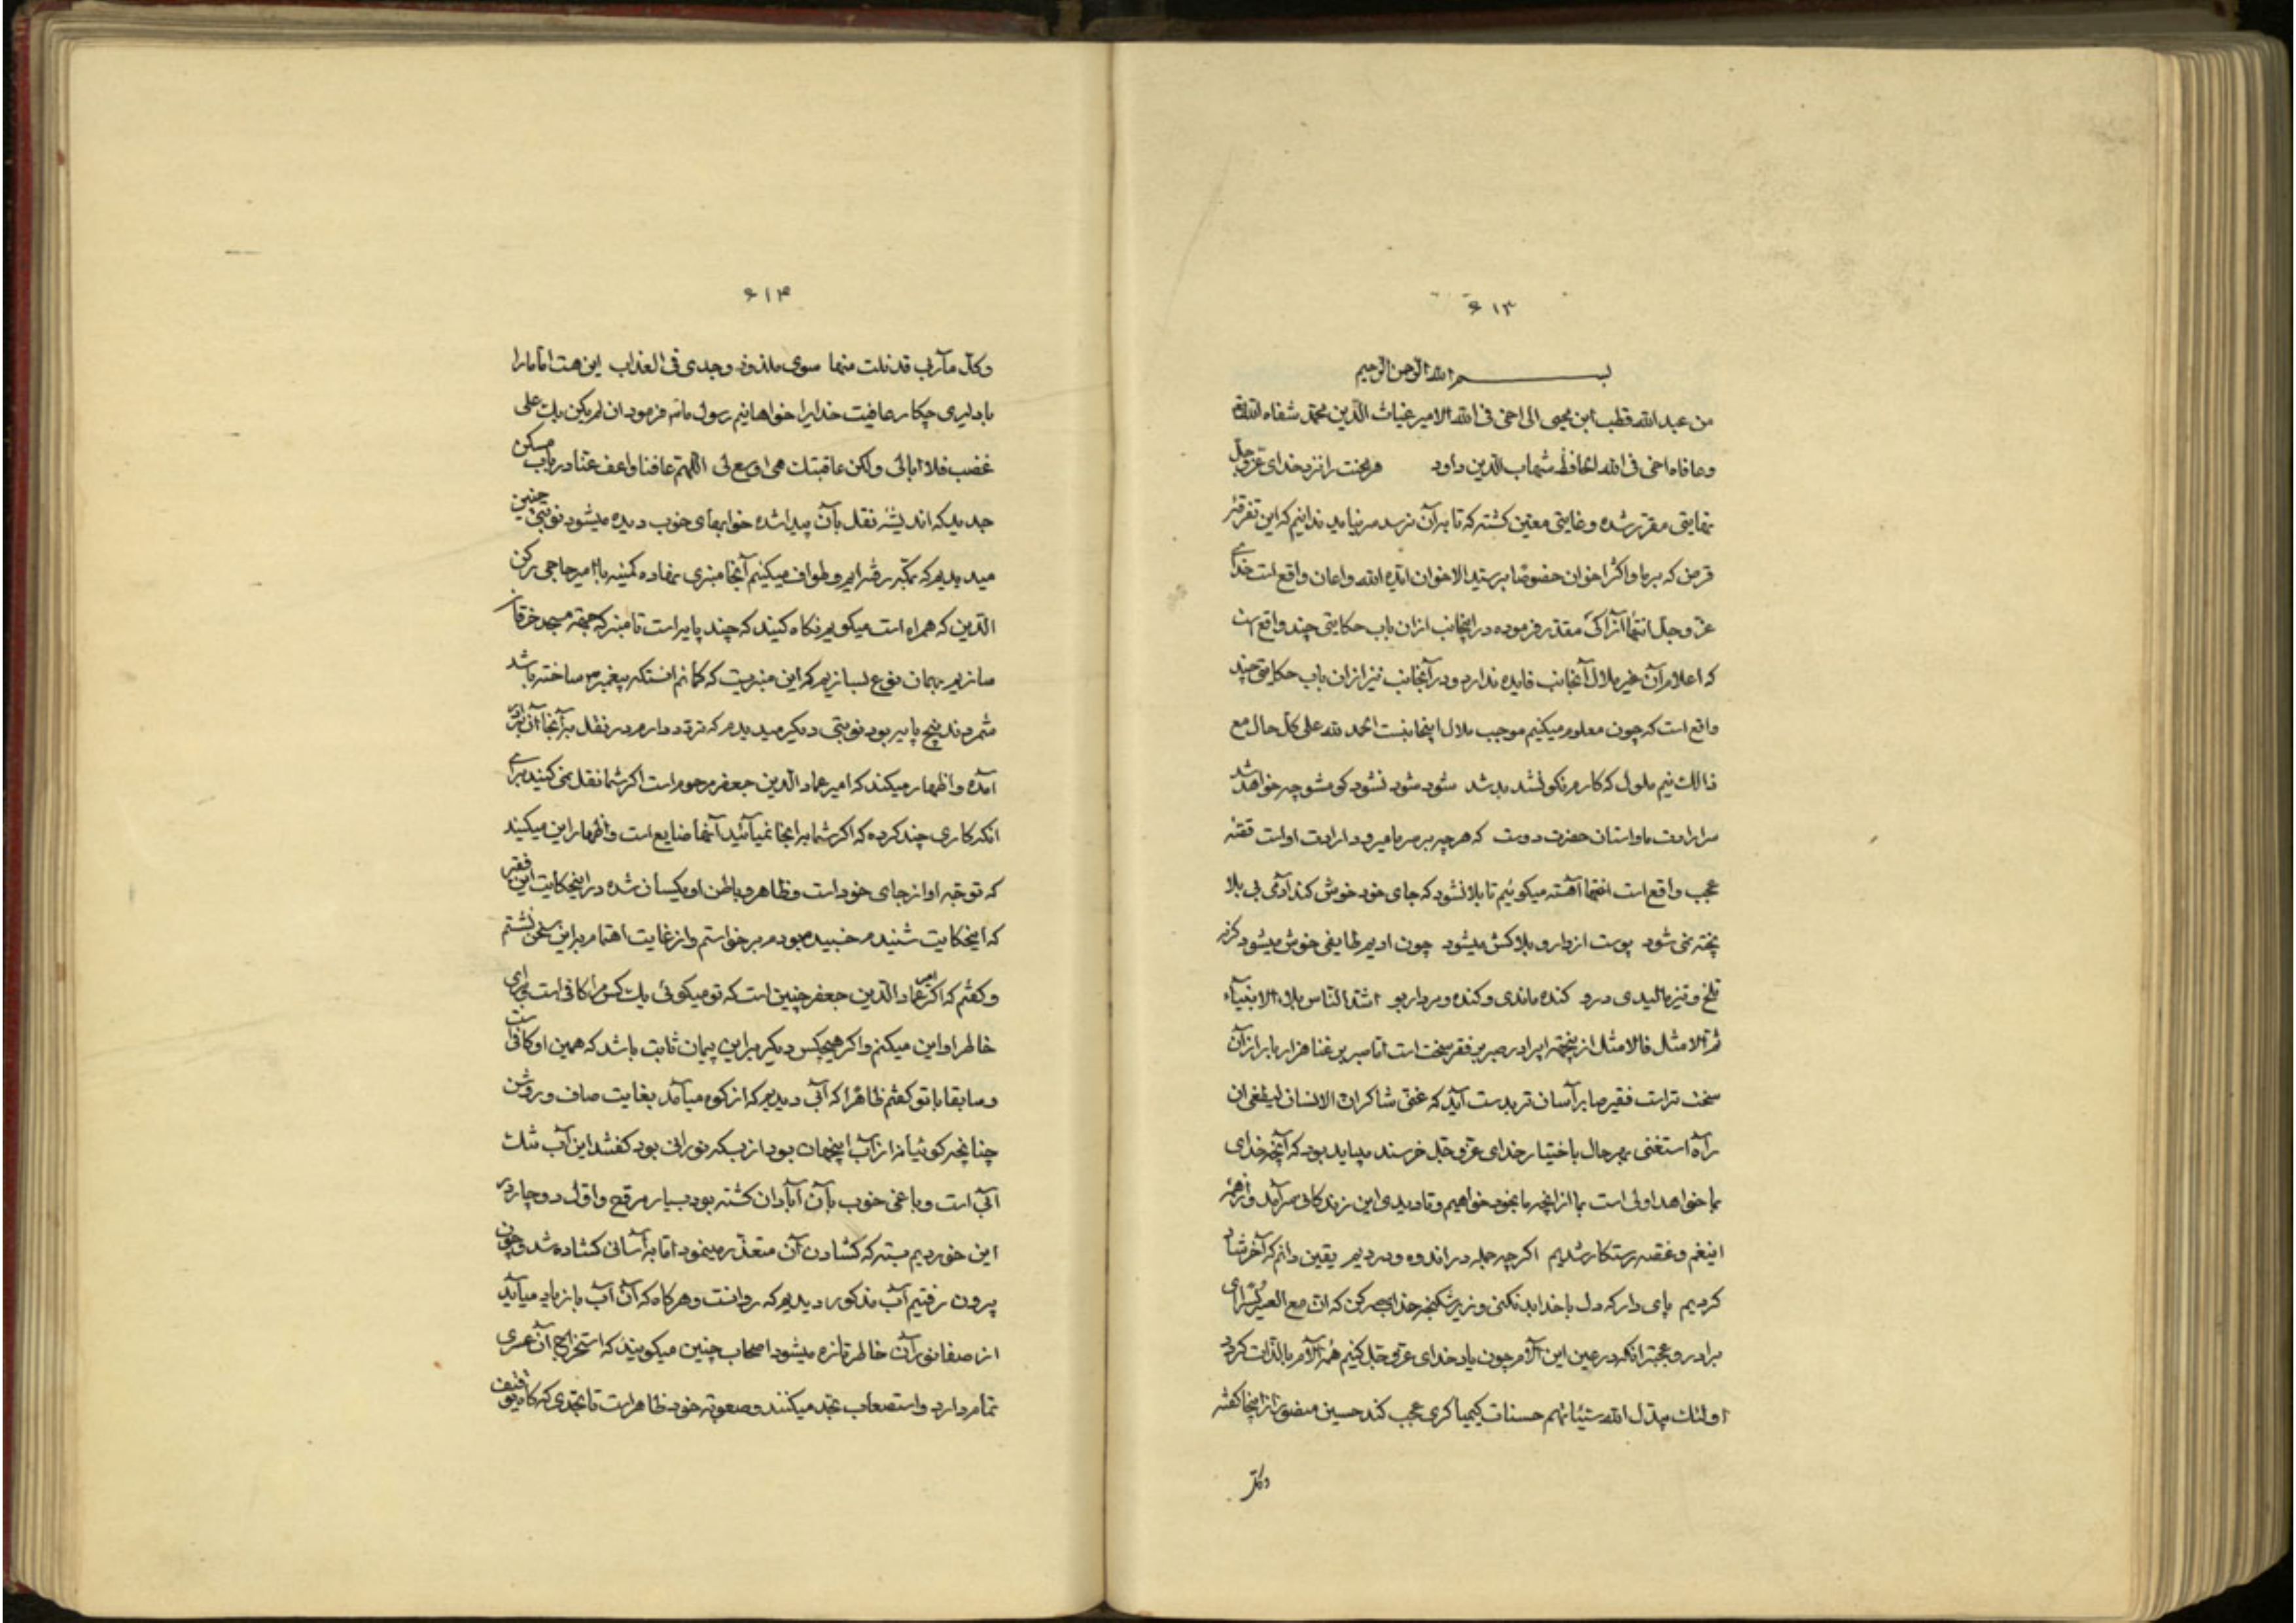 ۶۱۳
بسم الله الرحمن الرحیم
من عبد الله قطب ابن محیی الی اخی فی الله الامیر غیاث الدین محمد شفاه الله
وعافاه اخی فی الله الحافظ شهاب الدین داود هر محنت را نزد خدای عز وجل
نهایتی مقرر شده و غایتی معین کشته که تا به آن نرسد سر نیاید ندانیم که این تفرقهٔ
قرض که بر ما و اکثر اخوان خصوصا بر سید الاخوان ایده الله واعان واقع است خدای
عز وجل انتهاء آنرا کی مقدر فرموده در اینجانب ازان باب حکایتی چند واقع است
که اعلام آن غیر ملال آنجانب فایده ندارد و در آنجانب نیز ازان باب حکایتی چند
واقع است که چون معلوم میکنیم موجب ملال اینجانبست الحمد لله علی کل حال مع
ذالک نیم ملول که کارم نکو نشد بد شد شود شود نشود کو مشو چه خواهد شد
سر ارادت ما واستان حضرت دوست که هرچه بر سر ما میرود ارادت اوست قصهٔ
عجب واقع است آهسته میکوئیم تا بلا نشود که جای خود خوش کند آدمی بی بلا
پخته نمی شود پوست از دارو بلاکش میشود چون ادیم طایفی خوش میشود کر نه
تلخ و تیز مالیدی درو کنده ماندی و کنده و مردار بو اشد الناس بلاء الانبیاء
ثم الامثل فالامثل از پنجهٔ ای برادر صبر بر فقر سخت است اما صبر بر غنا هزار بار از آن
سخت تر است فقیر صابر آسان تر بدست آید که غنی شاکر ان الانسان لیطغی ان
رآه استغنی بهر حال باختیار خدای عز وجل خرسند میباید بود که آنچه خدای
بما خواهد اولی است بما از انچه ما بخود خواهیم و تا دیدی این زندکانی سر آمد و از همه
اینغم و غصه رستکار شدیم اکر چه جمله در اندوه و دردیم یقین دانم که آخر شاد
کردیم پای دار که دل با خدا بد نکنی و زیر شکنجه خدا صبر کن که ان مع العسر یسرا ای
برادر و عجبتر انکه در عین این آلام چون یاد خدای عز وجل کنیم همه آلام ما لذات کردد
اولئک یبدل الله سیئاتهم حسنات کیمیا کری عجب کند حسین منصور از اینجا کفته
وکل
۶۱۴
وکل مآرب قد نلت منها سوی ملذوذ وجدی فی العذاب این هست اما ما را
با دلیری چکار عافیت خدایرا خواهانیم رسول ما ص فرمود ان لم یکن بک علی
غضب فلا ابالی ولکن عافیتک هی اوسع لی اللهم عافنا واعف عنا در باب مسکن
جدید که اندیشه نقل بآن پیدا شده خوابهای خوب دیده میشود نوبتی چنین
میدیدیم که بمکه رفته ایم و طواف میکنیم آنجا منبری نهاده کمینه با امیر حاجی رکن
الدین که همراه است میکویم نکاه کنید که چند پایه است تا منبر که جهة مسجد خرقان
سازیم بهمان نوع بسازیم که این منبریست که کمانم انستکه پیغمبر ص ساخته باشد
شمردند پنج پایه بود نوبتی دیکر میدیدم که تردد دارم در نقل به آنجا
آمده و اظهار میکند که امیر عماد الدین جعفر مرحوم است اکر شما نقل نمی کنید برای
انکه کاری چند کرده که اکر شما به اینجا نمیآئید آنها ضایع است و اظهار این میکنید
که توجه او از جای خود است و ظاهر و باطن او یکسان شده در اینحکایت این فقیر
که اینحکایت شنیدم خسبیده بودم برخواستم و از غایت اهتمام براین سخن نشستم
و کفتم که اکر امیر عماد الدین جعفر چنین است که تو میکوئی یک کس مرا کافی است برای
خاطر او این میکنم و اکر هیچکس دیکر بر این پیمان ثابت باشد که همین او کافی است
و سابقا با تو کفتم ظاهرا که آبی دیدیم که از کوه میآمد بغایت صاف و روشن
چنانچه کوئیا نه از آب اینجهان بود از بسکه نورانی بود کفتند این آب ملک
آبی است و باغی خوب بآن آبادان کشته بود بسیار مروح و اول دوچار در
این خوردیم بسته که کشادن آن متعذر مینمود اما به آسانی کشاده شد و چون
بیرون رفتیم آب مذکور دیدیم که روانست و هرکاه که آن آب بازیاد میآید
از صفا نور آن خاطر تازه میشود اصحاب چنین میکویند که استخراج آن عسری
تمام دارد و استصعاب بجد میکنند و صعوبة خود ظاهراست تا بحدی که کاه توقیف